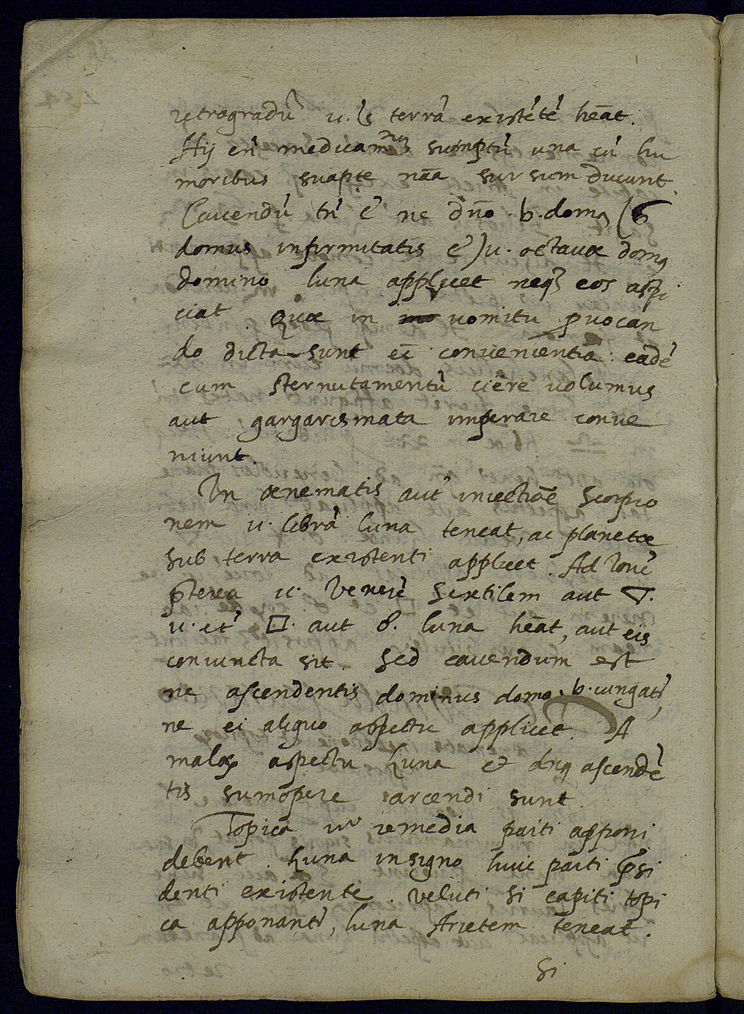 retrogradū u. sŭ terrā existētē heāt.
Hij eñ medicamᵗⁱˢ sumptū una cū hu
moribus suapte nāa sursum ducunt.
Cavendū tñ ē ne dño .b. domꝰ (6
domus infirmitatis ē) u. octavæ domꝰ
domino luna applicet neqꝫ eos aspi
ciat. Quæ in vomitu ꝓvocan
do dicta sunt ei convenientia: eadē
cum sternutamentū ciere volumus
aut gargarismata imperare conve
niunt.
In ænematis aut iniectiōe Scorpio
nem u. librā luna teneat, ac planetæ
sub terra existenti applicet. Ad Iovē
p̄terea u. Venerē Sextilem aut △.
u. et □. aut ☍. luna heāt, aut eis
coniuncta sit. Sed cavendum est
ne ascendentis dominus domo .b. iungatʳ,
ne ei aliquo aspectu applicet. A
maloꝝ aspectu Luna et dnꝰ ascendē
tis summopere arcendi sunt.
Topica uᵒ remedia parti apponi
debent Luna in signo huic parti p̄si
denti existente. veluti si capiti topi
ca apponantʳ, luna Arietem teneat.
Si